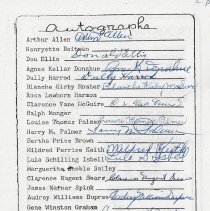 Autographs
Arthur Allen Arthur Allen
Henryetta Bateman
Don Ellis Donald Ellis
Agnes Kellar Donahue Agnes K. Donahue
Dully Harrod Dully Harrod
Blanche Kirby Hosmer Blanche Kirby Hosmer
Rosa Lawhorn Harmon
Clarence Vane McGuire
Ralph Monger
Louise Thomas Palmer Louise Thomas Palmer
Harry M. Palmer Harry M. Palmer
Bertha Price Brown
Mildred Perrine Keith Mildred Keith
Lula Schilling Isbell Lula S. Isbell
Marguerite Noble Bailey
Clarence Nugent Sears Clarence Nugent Sears
James Warner Spink
Audrey Williams Dupree Audrey Williams Dupree
Gene Winston Graham